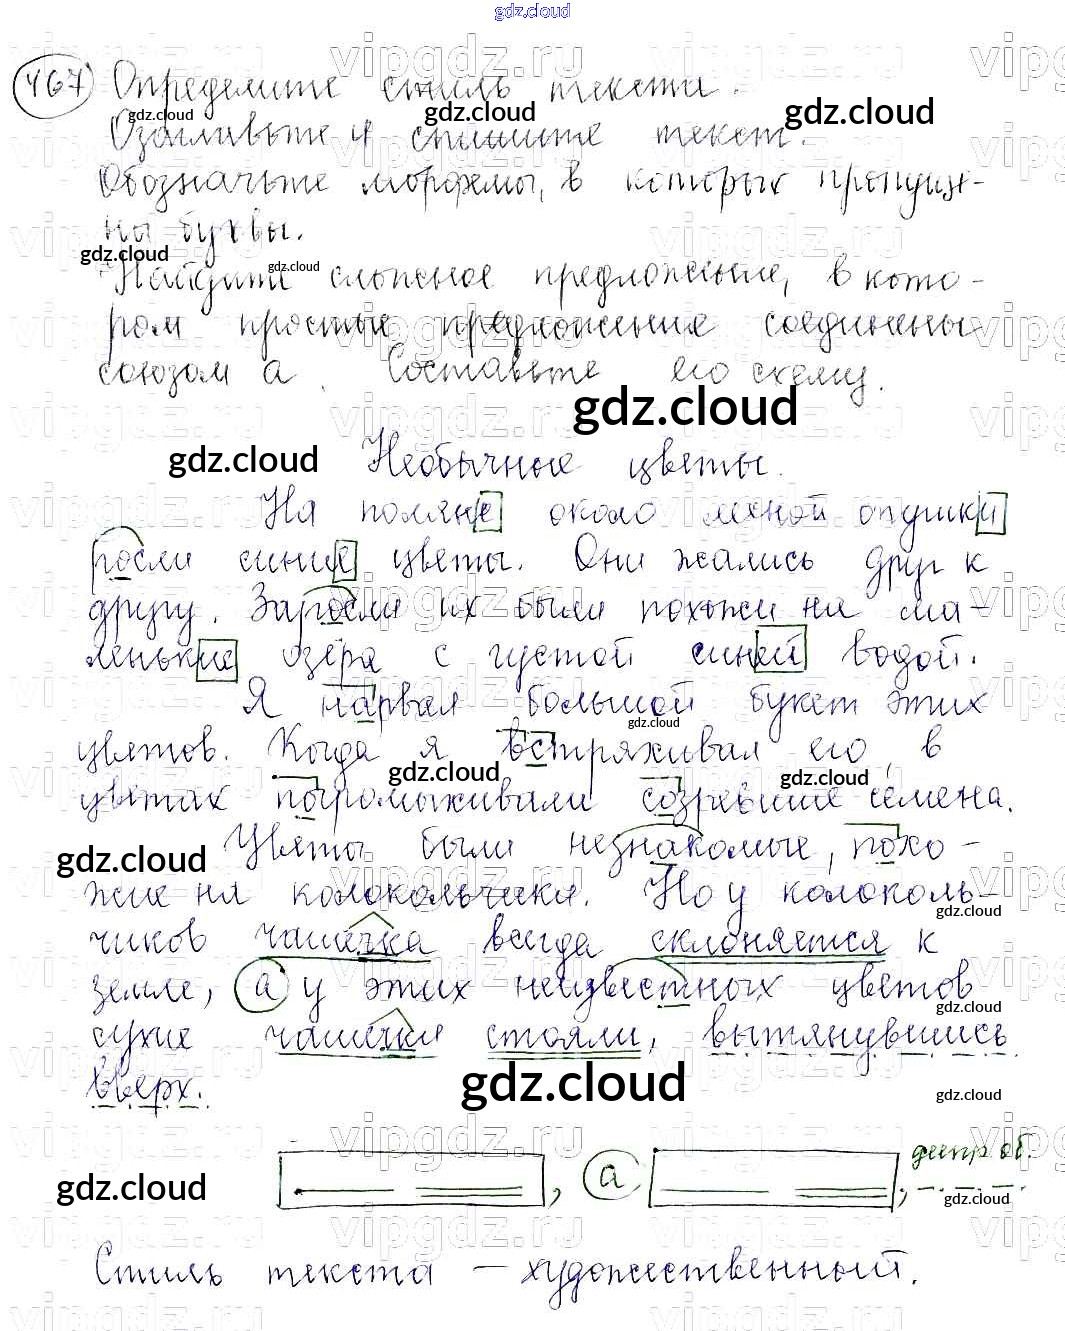 gdz.cloud
467 Определите стиль текста.
Озаглавьте и спишите текст.
Обозначьте морфемы, в которых пропуще-
ны буквы.
Найдите сложное предложение, в кото-
ром простые предложения соединены
союзом а. Составьте его схему.
Необычные цветы.
На поляне около лесной опушки
росли синие цветы. Они жались друг к
другу. Заросли их были похожи на ма-
ленькие озёра с густой синей водой.
Я нарвал большой букет этих
цветов. Когда я встряхивал его, в
цветах погромыхивали созревшие семена.
Цветы были незнакомые, похо-
жие на колокольчики. Но у колоколь-
чиков чашечка всегда склоняется к
земле, а у этих неизвестных цветов
сухие чашечки стояли, вытянувшись
вверх.
, а , деепр об.
Стиль текста – художественный.